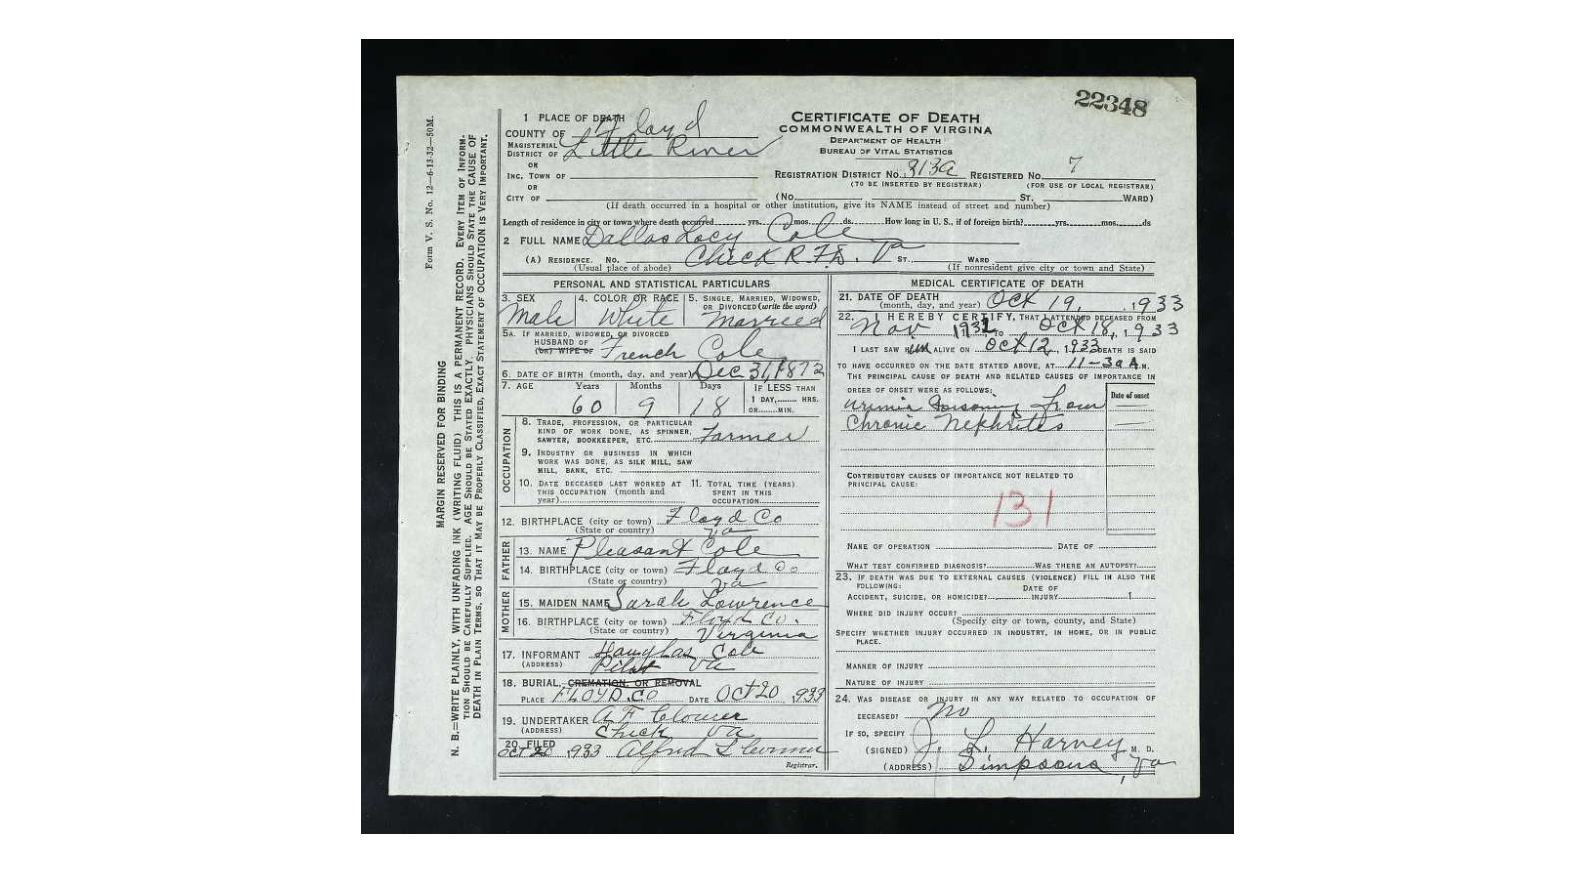 22348
1 PLACE OF DEATH
COUNTY OF Floyd
MAGISTERIAL DISTRICT OF Little River
OR
INC. TOWN OF
OR
CITY OF
CERTIFICATE OF DEATH
COMMONWEALTH OF VIRGINIA
DEPARTMENT OF HEALTH
BUREAU OF VITAL STATISTICS
REGISTRATION DISTRICT NO. 313a REGISTERED NO. 7
(TO BE INSERTED BY REGISTRAR) (FOR USE OF LOCAL REGISTRAR)
(No. ST. WARD)
(If death occurred in a hospital or other institution, give its NAME instead of street and number)
Length of residence in city or town where death occurred yrs. mos. ds. How long in U. S., if of foreign birth? yrs. mos. ds
2 FULL NAME Dallas Lacy Cole
(A) RESIDENCE. No. Chick R.F.D. Va ST. WARD
(Usual place of abode) (If nonresident give city or town and State)
PERSONAL AND STATISTICAL PARTICULARS
3. SEX 4. COLOR OR RACE 5. SINGLE, MARRIED, WIDOWED, OR DIVORCED (write the word)
Male White Married
5A. IF MARRIED, WIDOWED, OR DIVORCED
HUSBAND OF
(OR) WIFE OF French Cole
6. DATE OF BIRTH (month, day, and year) Dec 31, 1872
7. AGE Years Months Days IF LESS THAN
1 DAY, HRS.
OR MIN.
60 9 18
OCCUPATION
8. TRADE, PROFESSION, OR PARTICULAR
KIND OF WORK DONE, AS SPINNER,
SAWYER, BOOKKEEPER, ETC. Farmer
9. INDUSTRY OR BUSINESS IN WHICH
WORK WAS DONE, AS SILK MILL, SAW
MILL, BANK, ETC.
10. DATE DECEASED LAST WORKED AT THIS OCCUPATION (month and year)
11. TOTAL TIME (YEARS) SPENT IN THIS OCCUPATION
12. BIRTHPLACE (city or town) Floyd Co
(State or country) Va
FATHER
13. NAME Pleasant Cole
14. BIRTHPLACE (city or town) Floyd Co
(State or country) Va
MOTHER
15. MAIDEN NAME Sarah Lawrence
16. BIRTHPLACE (city or town) Floyd Co.
(State or country) Virginia
17. INFORMANT Cole
(ADDRESS) Pilot Va
18. BURIAL, CREMATION, OR REMOVAL
PLACE FLOYD.CO DATE Oct 20, 1933
19. UNDERTAKER A F Clower
(ADDRESS) Chick Va
20. FILED
OCT 1933 Alfred
Registrar.
MEDICAL CERTIFICATE OF DEATH
21. DATE OF DEATH
(month, day, and year) Oct 19, 1933
22. I HEREBY CERTIFY, THAT I ATTENDED DECEASED FROM
Nov 1932, TO Oct 18, 1933
I LAST SAW him ALIVE ON Oct 12, 1933 DEATH IS SAID
TO HAVE OCCURRED ON THE DATE STATED ABOVE, AT 11-30 A M.
THE PRINCIPAL CAUSE OF DEATH AND RELATED CAUSES OF IMPORTANCE IN
ORDER OF ONSET WERE AS FOLLOWS: Date of onset
Poisoning from
Chronic Nephritis
CONTRIBUTORY CAUSES OF IMPORTANCE NOT RELATED TO
PRINCIPAL CAUSE:
131
NAME OF OPERATION DATE OF
WHAT TEST CONFIRMED DIAGNOSIS? WAS THERE AN AUTOPSY?
23. IF DEATH WAS DUE TO EXTERNAL CAUSES (VIOLENCE) FILL IN ALSO THE
FOLLOWING:
ACCIDENT, SUICIDE, OR HOMICIDE? DATE OF INJURY 1
WHERE DID INJURY OCCUR?
(Specify city or town, county, and State)
SPECIFY WHETHER INJURY OCCURRED IN INDUSTRY, IN HOME, OR IN PUBLIC
PLACE.
MANNER OF INJURY
NATURE OF INJURY
24. WAS DISEASE OR INJURY IN ANY WAY RELATED TO OCCUPATION OF
DECEASED? No
IF SO, SPECIFY
(SIGNED) J. L. Harvey M. D.
(ADDRESS) Simpsons, Va
Form V. S. No. 12—6-13-32—50M.
MARGIN RESERVED FOR BINDING
N. B.—WRITE PLAINLY, WITH UNFADING INK (WRITING FLUID). THIS IS A PERMANENT RECORD. EVERY ITEM OF INFORM-
TION SHOULD BE CAREFULLY SUPPLIED. AGE SHOULD BE STATED EXACTLY. PHYSICIANS SHOULD STATE THE CAUSE OF
DEATH IN PLAIN TERMS, SO THAT IT MAY BE PROPERLY CLASSIFIED. EXACT STATEMENT OF OCCUPATION IS VERY IMPORTANT.